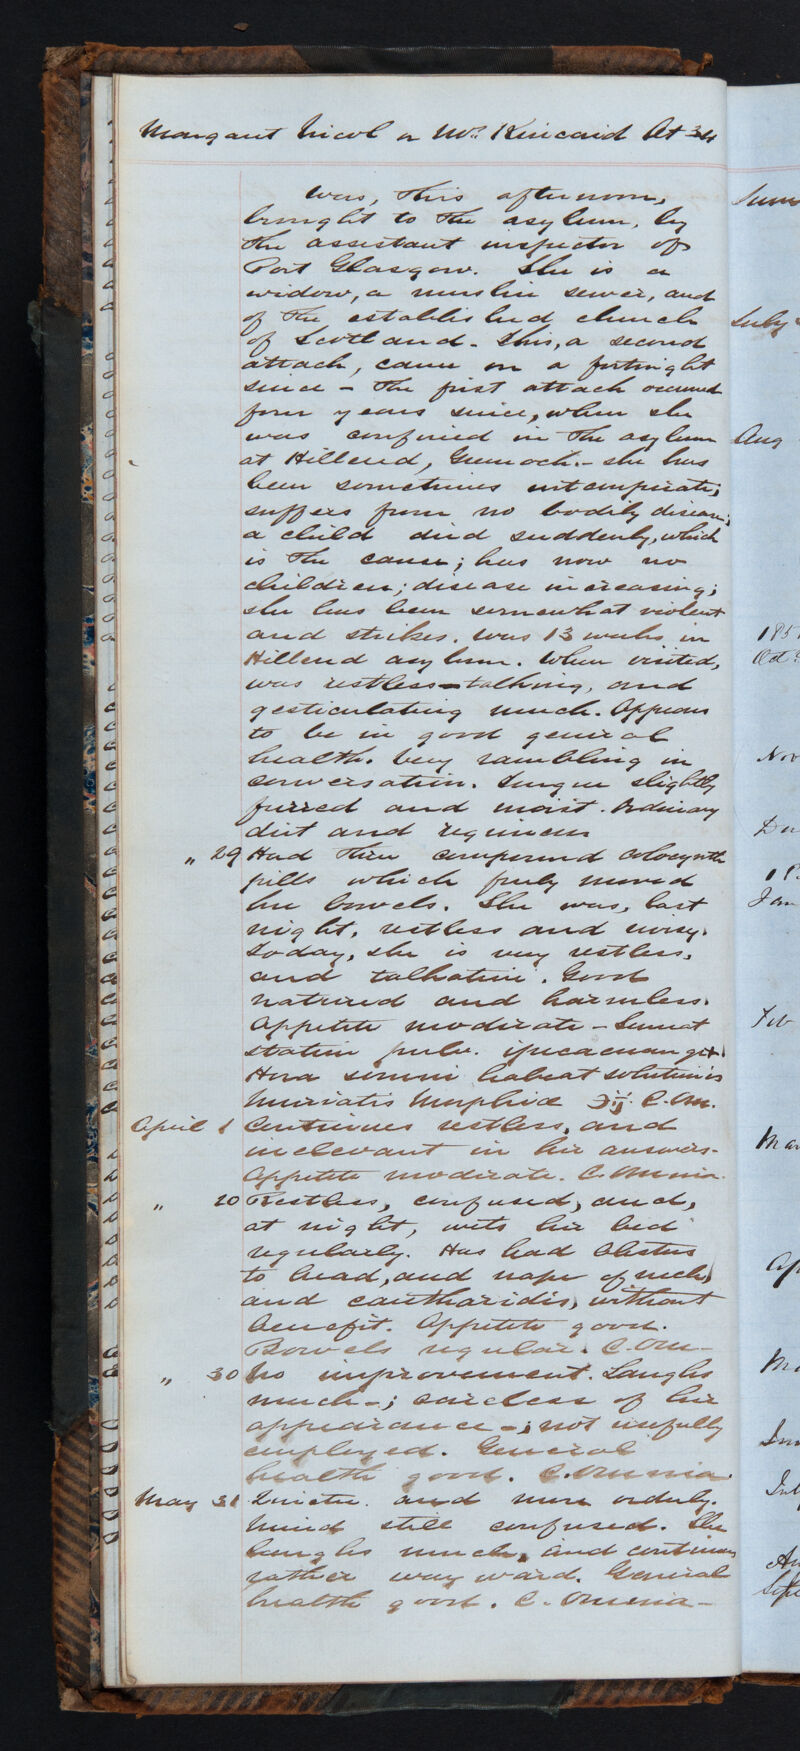 Margaret Nicol or Mrs. Kincaid Æt 34
Was, this afternoon,
brought to the asylum, by
the assistant inspector of
Port Glasgow. She is a
widow, a muslin sewer, and
of the established church
of Scotland. This, a second
attack, came on a fortnight
since - the first attack occurred
four years since, when she
was confined in the asylum
at Hillend, Greenock. - she has
been sometimes intemperate;
suffers from no bodily disease;
a child died suddenly, which
is the cause; has now no
children; disease increasing;
she has been somewhat violent
and strikes. Was 13 weeks in
Hillend asylum. When visited,
was restless - talking, and
gesticulating much. Appears
to be in good general
health. Very rambling in
conversation. Tongue slightly
furred and moist. Ordinary
diet and regimen
" 29 Had three compound colocynth
pills which freely moved
her bowels. She was, last
night, restless and noisy.
Today, she is very restless,
and talkative. Good
natured and harmless.
Appetite moderate - Sumat
statim pulv. ipecacuan
Hora somni habeat solutionis
Muriatis Morphiæ ʒij. C. Om.
April 1 Continues restless, and
irrelevant in her answers.
Appetite moderate. C. Omnia.
" 20 Restless, confused, and,
at night, wets her bed
regularly. Has had blisters
to head, and nape of neck,
and cantharidis, without
benefit. Appetite good.
Bowels regular. C. Om -
" 30 No improvement. Laughs
much -; careless of her
appearance -; not usefully
employed. General
health good. C. Omnia
May 31 Quieter. and more orderly.
Mind still confused. She
laughs much, and continues
rather wayward. General
health good. C. Omnia -
June
July
Aug
185
Oct
Nov
De
18
Jan
Feb
Mar
Ap
Ma
Jun
Jul
Au
Sept